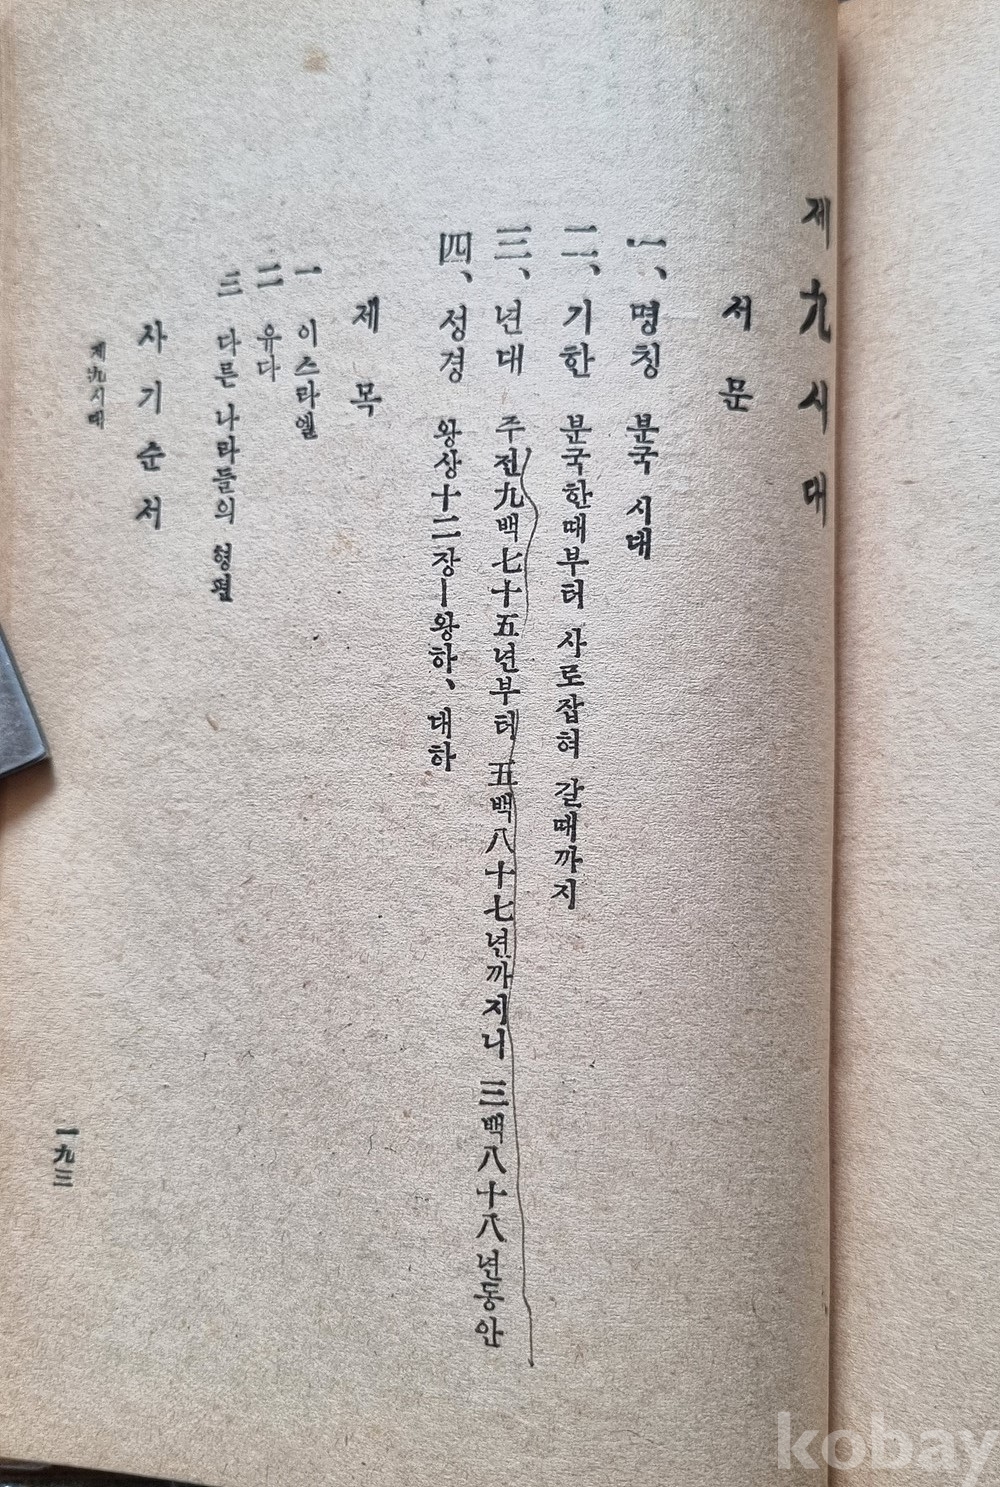 제九시대
서문
一、 명칭 분국 시대
二、 기한 분국한때부터 사로잡혀 갈때까지
三、 년대 주전九백七十五년부터 五백八十七년까지니 三백八十八년동안
四、 성경 왕상十二장ー왕하、대하
제목
一 이스라엘
二 유다
三 다른 나라들의 형편
사기순서
제九시대
一九三
kobay